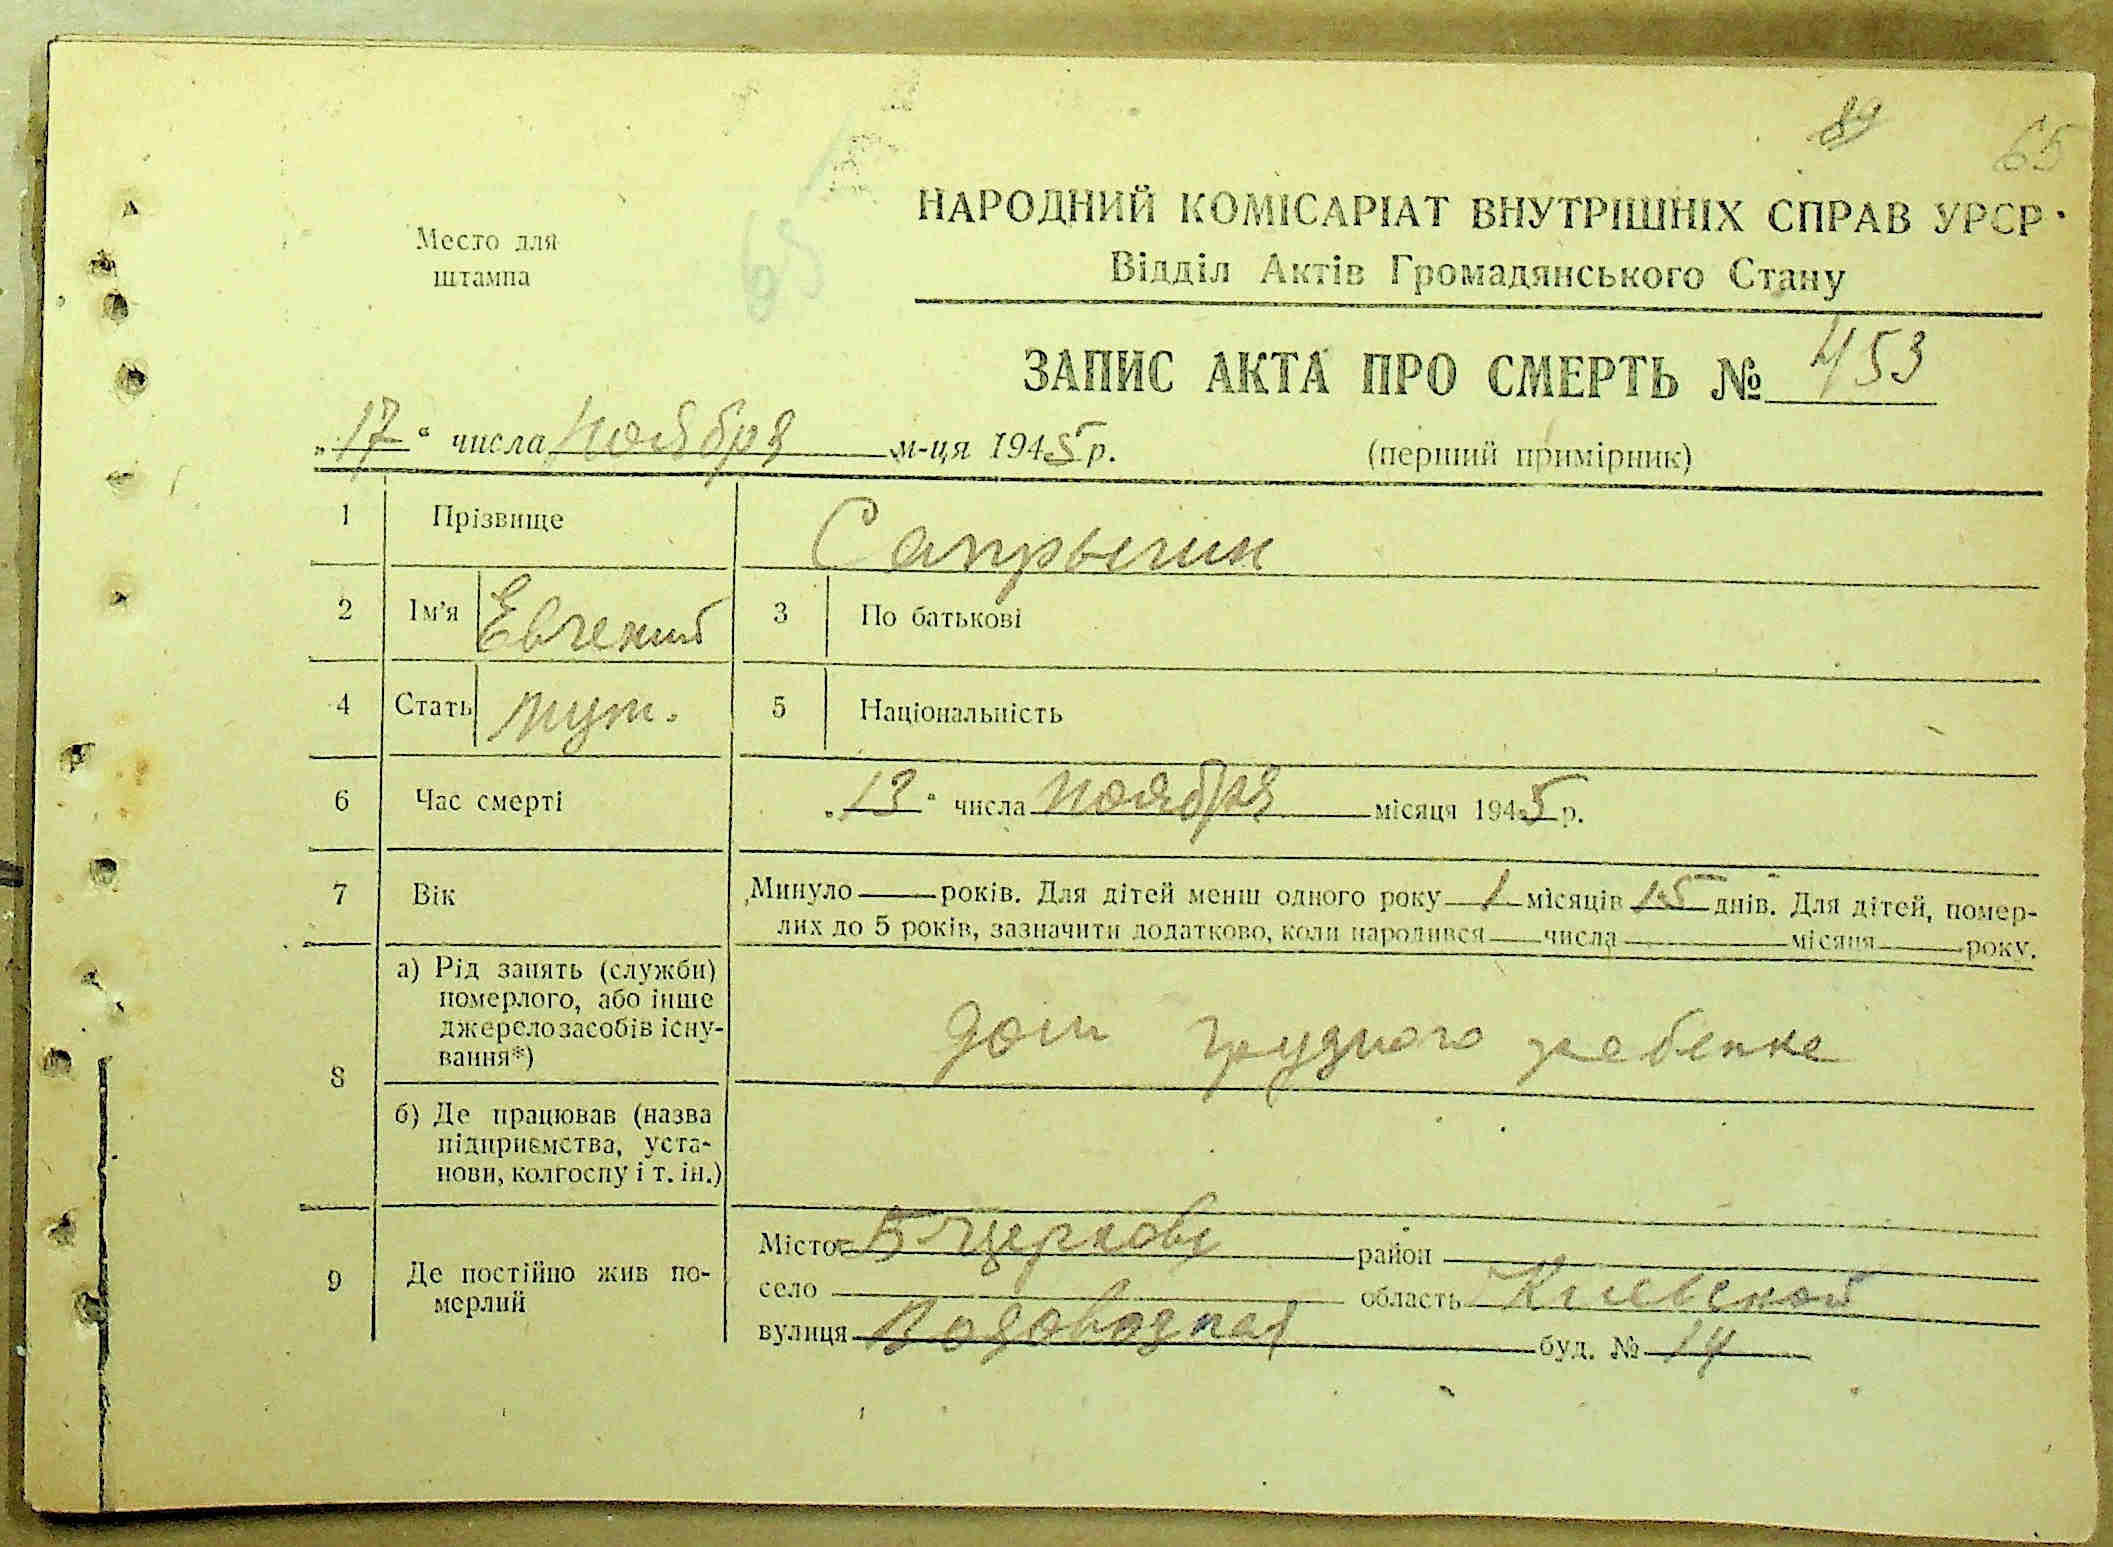 84 65
Место для
штампа
65
НАРОДНИЙ КОМІСАРІАТ ВНУТРІШНІХ СПРАВ УРСР
Відділ Актів Громадянського Стану
ЗАПИС АКТА ПРО СМЕРТЬ № 453
„17“ числа ноября м-ця 1945 р. (перший примірник)
1 Прізвище Сапрыгин
2 Ім'я Евгений 3 По батькові
4 Стать муж. 5 Національність
6 Час смерті „13“ числа ноября місяця 1945 р.
7 Вік Минуло — років. Для дітей менш одного року 1 місяців 15 днів. Для дітей, помер-
лих до 5 років, зазначити додатково, коли народився числа місяця року.
8 а) Рід занять (служби)
померлого, або інше
джерело засобів існу-
вання*)
дом грудного ребенка
б) Де працював (назва
підприємства, уста-
нови, колгоспу і т. ін.)
9 Де постійно жив по-
мерлий
Місто Б Церковь район
село область Киевской
вулиця Водовозная буд. № 14